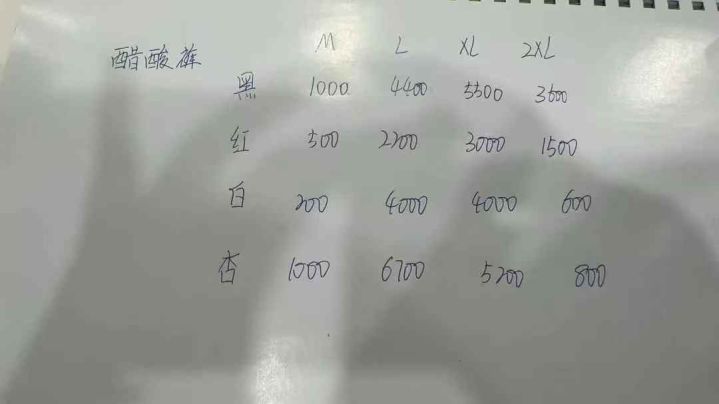 醋酸裤 M L XL 2XL
黑 1000 4400 5500 3500
红 500 2200 3000 1500
白 200 4000 4000 600
杏 1000 6700 5200 800